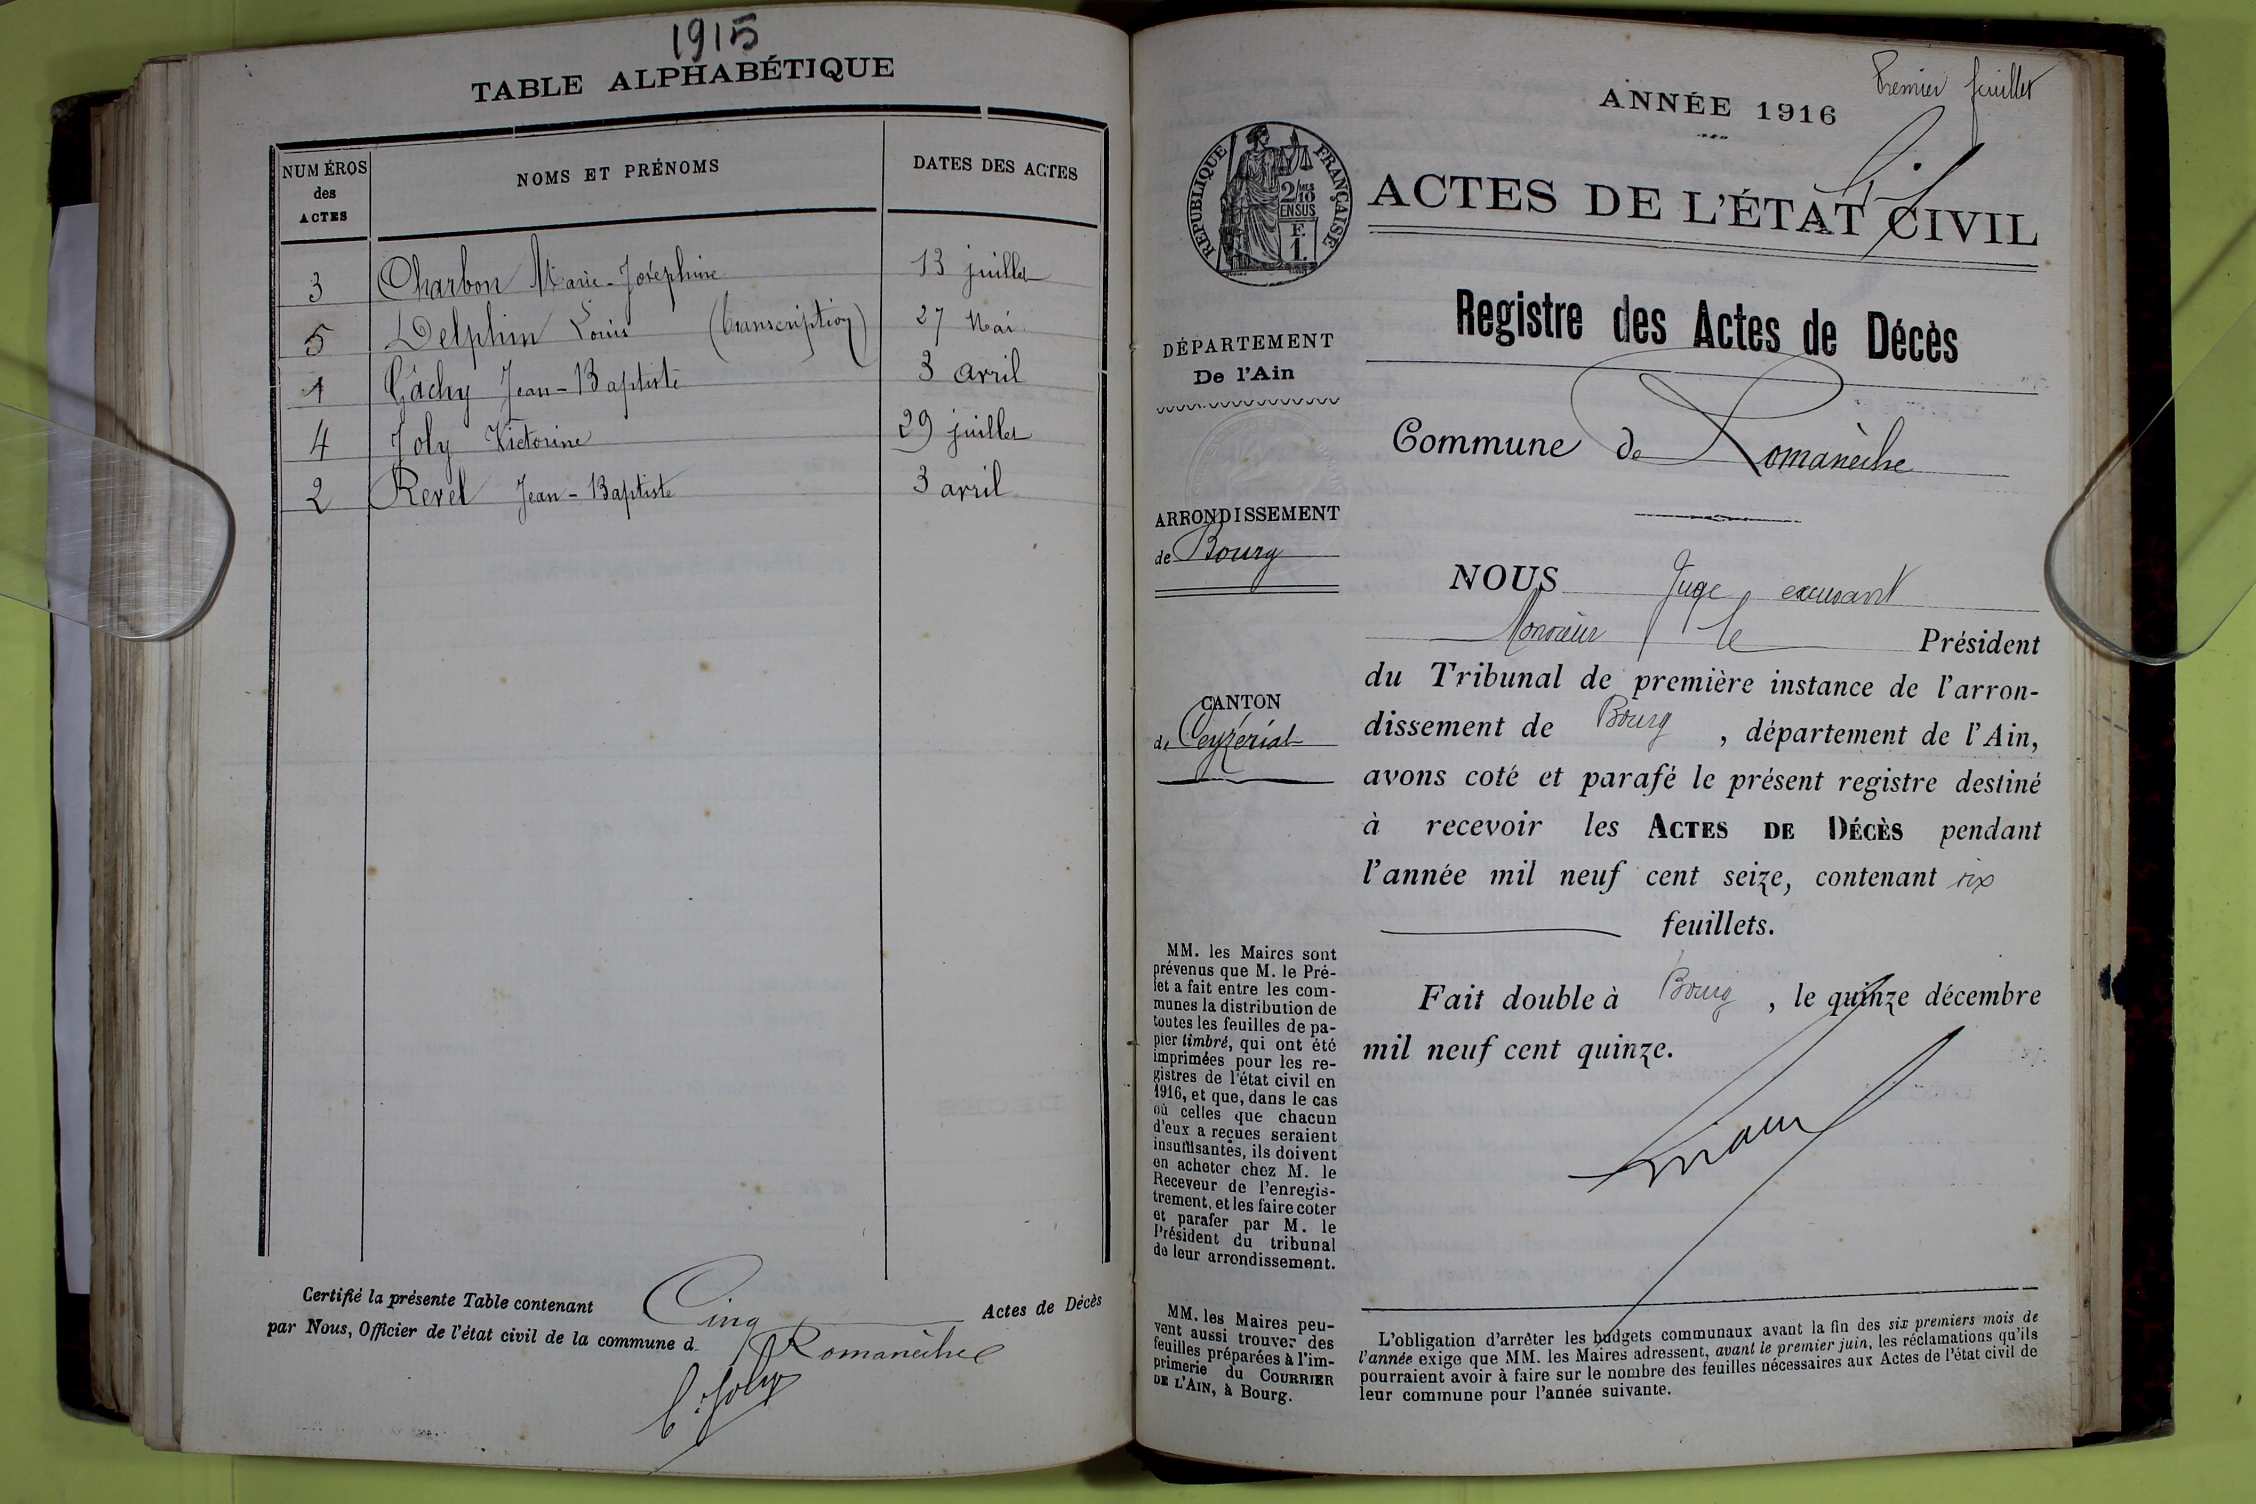 1915
TABLE ALPHABÉTIQUE
NUMÉROS
des
ACTES
NOMS ET PRÉNOMS
DATES DES ACTES
3 Charbon Marie-Joséphine 13 juillet
5 Delphin Louis (transcription) 27 Mai
1 Gâchy Jean-Baptiste 3 avril
4 Joly Victorine 29 juillet
2 Revel Jean-Baptiste 3 avril
Certifié la présente Table contenant Cinq Actes de Décès
par Nous, Officier de l'état civil de la commune d Romanèche
C. Joly
Premier feuillet
ANNÉE 1916
RÉPUBLIQUE FRANÇAISE
2/10
EN SUS
F.
1.
ACTES DE L'ÉTAT CIVIL
Registre des Actes de Décès
DÉPARTEMENT
De l'Ain
Commune de Romanèche
ARRONDISSEMENT
de Bourg
CANTON
de Ceyzériat
NOUS Juge excusant
Monsieur le Président
du Tribunal de première instance de l'arron-
dissement de Bourg, département de l'Ain,
avons coté et parafé le présent registre destiné
à recevoir les ACTES DE DÉCÈS pendant
l'année mil neuf cent seize, contenant six
feuillets.
Fait double à Bourg, le quinze décembre
mil neuf cent quinze.
MM. les Maires sont
prévenus que M. le Pré-
fet a fait entre les com-
munes la distribution de
toutes les feuilles de pa-
pier timbré, qui ont été
imprimées pour les re-
gistres de l'état civil en
1916, et que, dans le cas
où celles que chacun
d'eux a reçues seraient
insuffisantes, ils doivent
en acheter chez M. le
Receveur de l'enregis-
trement, et les faire coter
et parafer par M. le
Président du tribunal
de leur arrondissement.
MM. les Maires peu-
vent aussi trouver des
feuilles préparées à l'im-
primerie du COURRIER
DE L'AIN, à Bourg.
L'obligation d'arrêter les budgets communaux avant la fin des six premiers mois de
l'année exige que MM. les Maires adressent, avant le premier juin, les réclamations qu'ils
pourraient avoir à faire sur le nombre des feuilles nécessaires aux Actes de l'état civil de
leur commune pour l'année suivante.